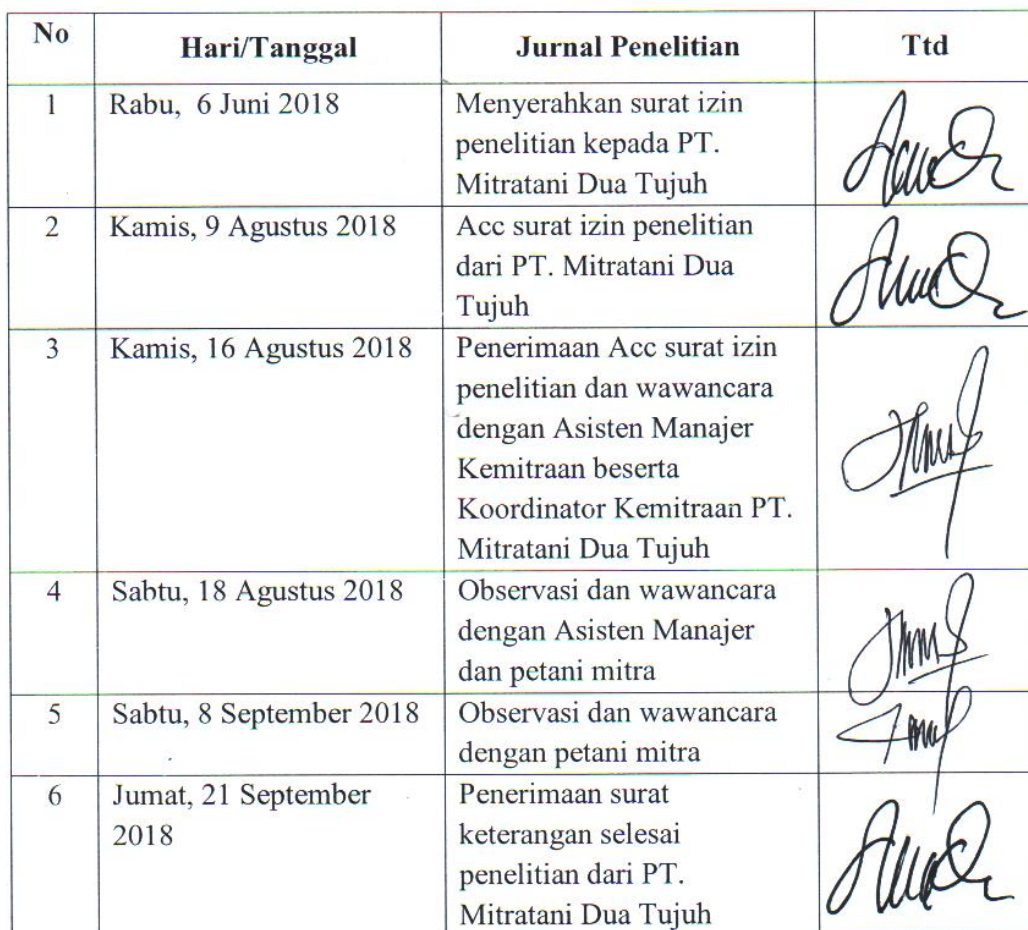 No Hari/Tanggal Jurnal Penelitian Ttd
1 Rabu, 6 Juni 2018 Menyerahkan surat izin
penelitian kepada PT.
Mitratani Dua Tujuh
2 Kamis, 9 Agustus 2018 Acc surat izin penelitian
dari PT. Mitratani Dua
Tujuh
3 Kamis, 16 Agustus 2018 Penerimaan Acc surat izin
penelitian dan wawancara
dengan Asisten Manajer
Kemitraan beserta
Koordinator Kemitraan PT.
Mitratani Dua Tujuh
4 Sabtu, 18 Agustus 2018 Observasi dan wawancara
dengan Asisten Manajer
dan petani mitra
5 Sabtu, 8 September 2018 Observasi dan wawancara
dengan petani mitra
6 Jumat, 21 September Penerimaan surat
2018 keterangan selesai
penelitian dari PT.
Mitratani Dua Tujuh